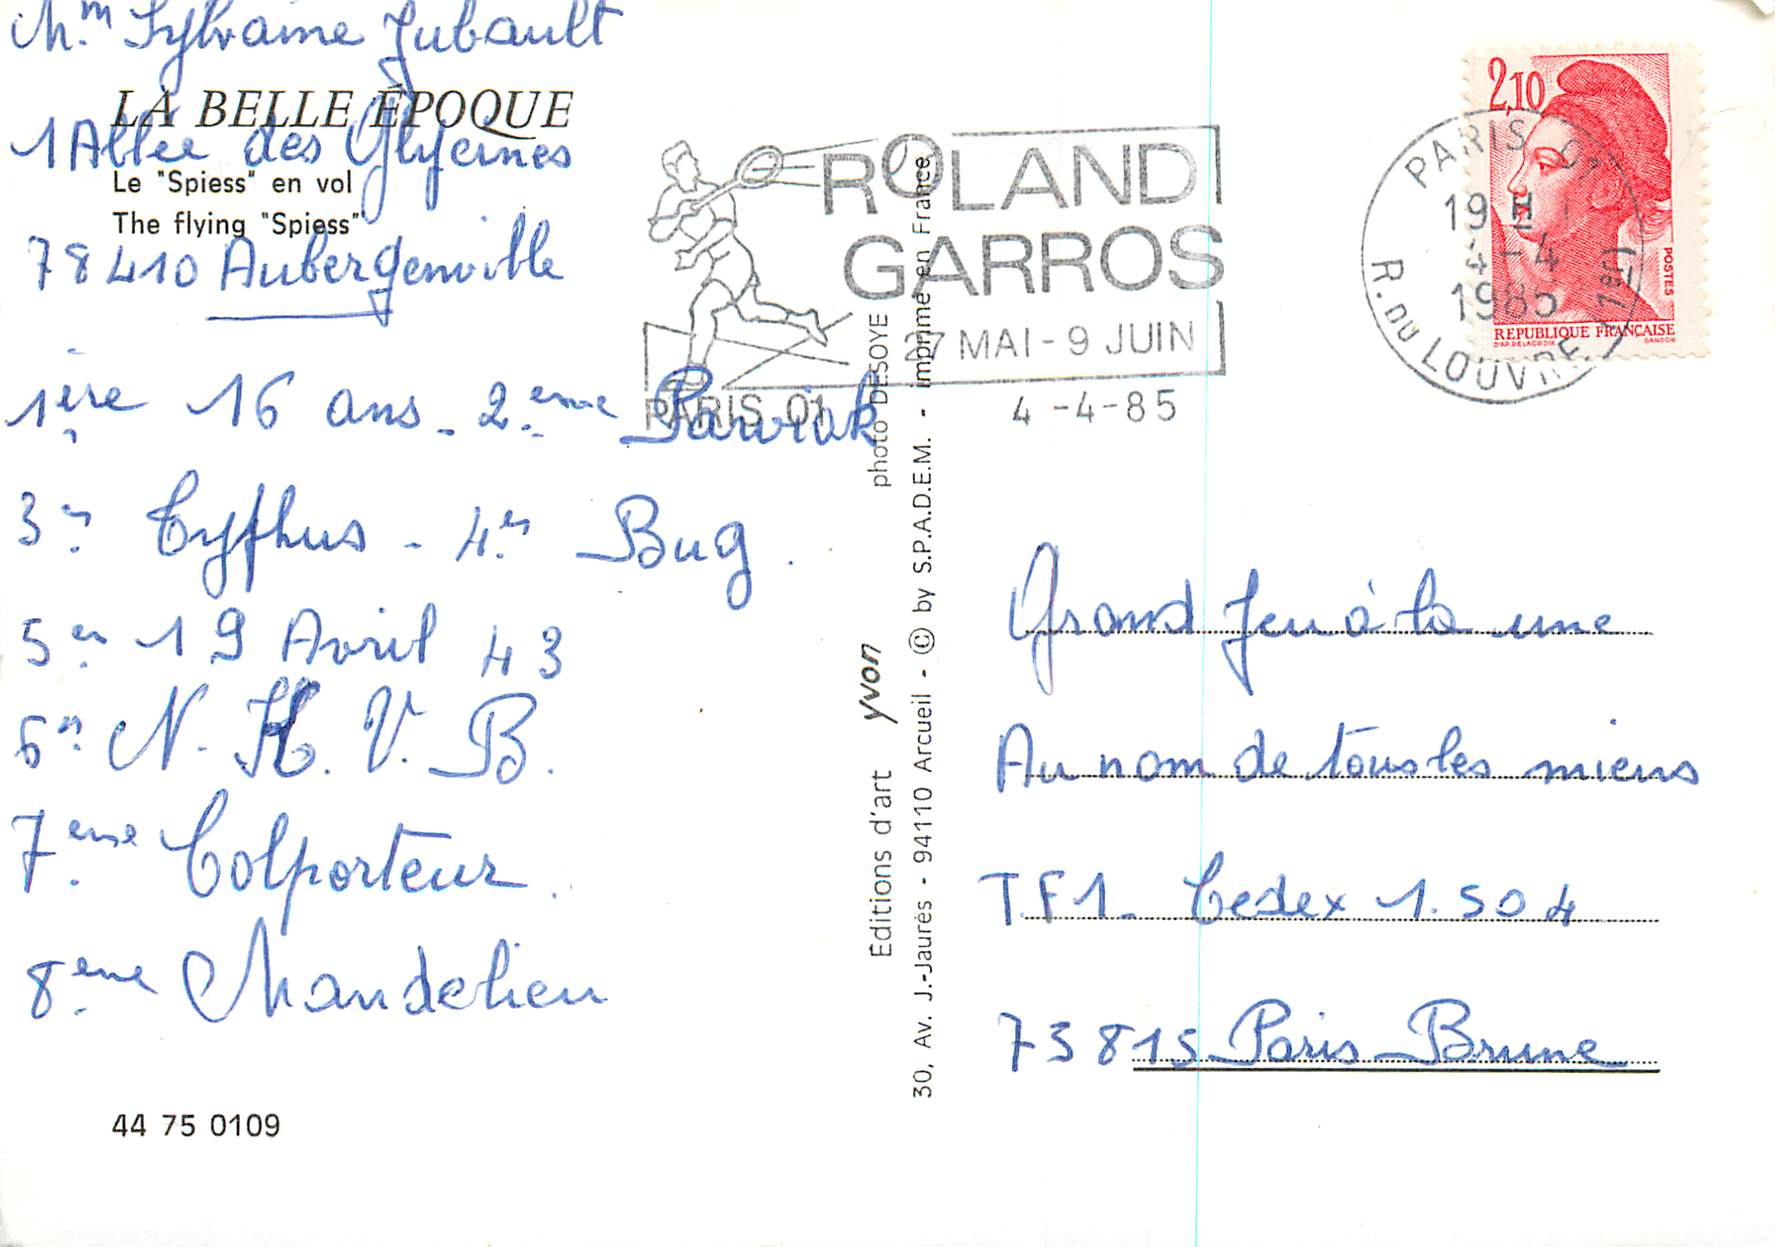 Mm Sylvaine Jubault
LA BELLE ÉPOQUE
1 Allée des Glycines
Le "Spiess" en vol
The flying "Spiess"
78410 Aubergenville
1ère 16 ans - 2.eme Pawiak
3.e Tyfhus - 4.e Bug.
5.e 19 Avril 43
6.e N. H. V. B.
7.eme Colporteur.
8.eme Mandelieu
44 75 0109
Editions d'art yvon photo DESOYE
30, Av. J.-Jaurès - 94110 Arcueil - © by S.P.A.D.E.M. - Imprimé en France
ROLAND
GARROS
27 MAI - 9 JUIN
PARIS 01
4 -4-85
2,10
POSTES
REPUBLIQUE FRANÇAISE
D'AP. DELACROIX GANDON
PARIS 01
19 H
4-4
1985
R. DU LOUVRE (1er)
Grand Jeu à la une
Au nom de tous les miens
T.F1. Cedex 1.504
73815 Paris Brune